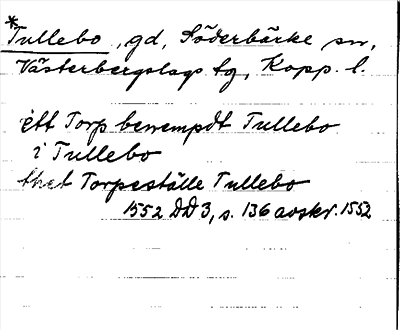 *Tullebo, gd, Söderbärke sn,
Västerbergslags tg, Kopp. l.
ett Torp benempdt Tullebo
i Tullebo
thet Torpeställe Tullebo
1552 DD 3, s. 136 avskr. 1552